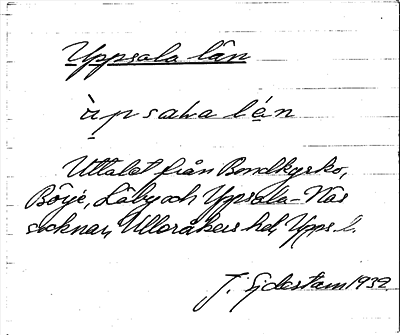 Uppsala län
ùpsala lẹ́n
Uttalet från Bondkyrko,
Börje, Läby och Uppsala-Näs
socknar, Ulleråkers hd, Upps. l.
J. Sjdestam 1932.